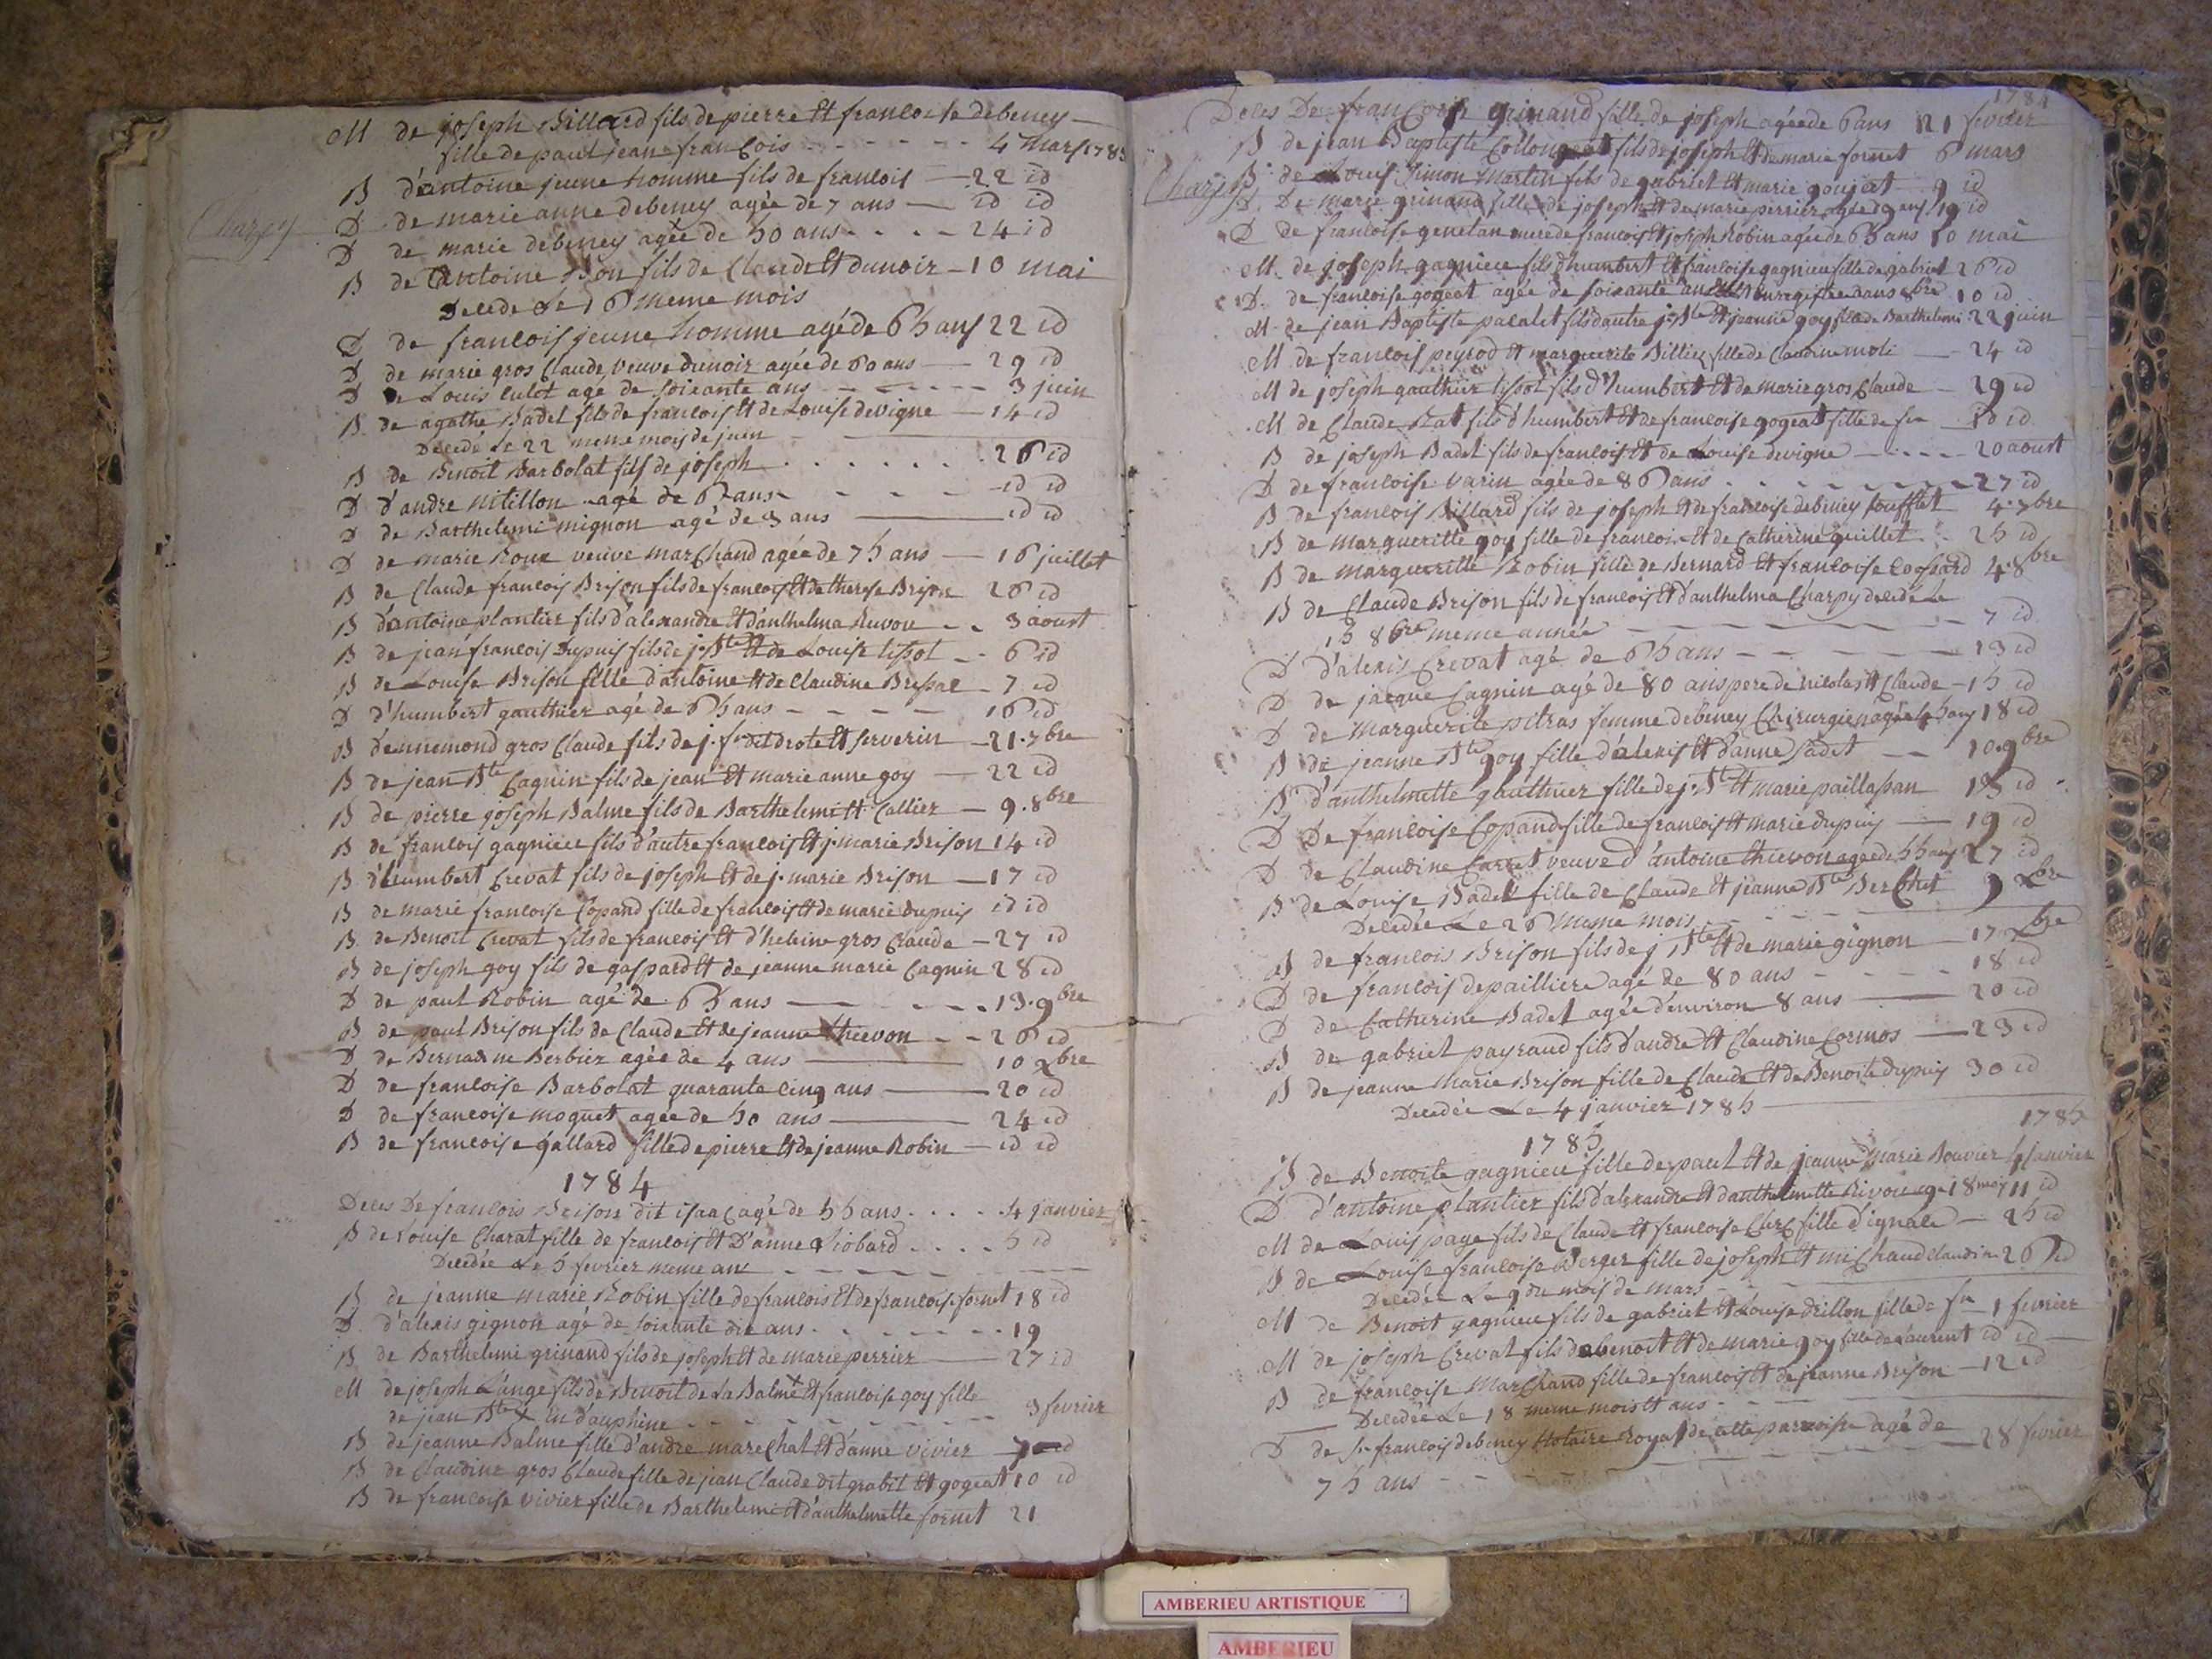 M de joseph Billard fils de pierre et francoise debeney
fille de paul jean francois 4 mars 1783
B d'antoine jeune homme fils de francois 22 id
Charpy
D de marie anne debeney agée de 7 ans id id
D de marie debeney agée de 50 ans 24 id
B de antoine Bon fils de Claude et dunoir 10 mai
Decede Le 16 meme mois
D de francois jeune homme agé de 65 ans 22 id
D de marie gros Claude veuve dunoir agée de 60 ans 29 id
D de Louis culet agé de soixante ans 3 juin
B de agathe Badel fils de francois et de Louise devigne 14 id
Decedé Le 22 meme mois de juin
B de Benoit Barbolat fils de joseph 26 id
D d'andre nitillon agé de ans id id
D de Barthelemi mignon agé de 3 ans id id
D de marie Roux veuve marchand agée de 75 ans 16 juillet
B de Claude francois Brison fils de francois et de therese Brison 26 id
B d'antoine plantier fils d'alexandre et d'anthelma Ruvore 3 aoust
B de jean francois Dupuis fils de j. Bte et de Louise tissot 6 id
B de Louise Brison fille d'antoine et de Claudine Bressac 7 id
D d'humbert gauthier agé de 65 ans 16 id
B d'ennemond gros Claude fils de j. fs dit drote et severin 21 7bre
B de jean Bte Cagnin fils de jean et marie anne goy 22 id
B de pierre joseph Balme fils de Barthelemi et Callier 9 8bre
B de francois gagnieu fils d'autre francois et j. marie Brison 14 id
B d'humbert Crevat fils de joseph et de j. marie Brison 17 id
B de marie francoise Copand fille de francois et de marie dupuis id id
B de Benoit Crevat fils de francois et d'heleine gros Claude 27 id
B de joseph goy fils de gaspard et de jeanne marie Cagnin 28 id
D de paul Robin agé de 65 ans 13 9bre
B de paul Brison fils de Claude et de jeanne thievon 26 id
D de Bernardine Berbiez agée de 4 ans 10 xbre
D de francoise Barbolat quarante cinq ans 20 id
D de francoise moquet agée de 50 ans 24 id
B de francoise gallard fille de pierre et de jeanne Robin id id
1784
Deces De francois Brison dit isaac agé de 55 ans 4 janvier
B de Louise Charat fille de francois et D'anne Liobard 5 id
Decedée Le 5 fevrier meme an
B de jeanne marie Robin fille de francois et de francoise fornet 18 id
D d'alexis gignon agé de soixante dix ans 19
B de Barthelemi grinand fils de joseph et de marie perrier 27 id
M de joseph Lange fils de Benoit de La Balme et francoise goy fille
de jean Bte En dauphine 3 fevrier
B de jeanne Balme fille d'andre marechal et d'anne vivier 7 id
B de Claudine gros Claude fille de jean Claude dit grabit et gogeat 10 id
B de francoise vivier fille de Barthelemi et d'anthelmette fornet 21
1784
Deces De francoise grinand fille de joseph agée de 6 ans 21 fevrier
B de jean Baptiste Collongeat fils de joseph et de marie fornet 6 mars
Charpy
B de Louis Simon Martin fils de gabriel et marie goujat 9 id
D De marie grinand fille de joseph et de marie perrier agée 19 id
D de francoise genetan mere de francois et joseph Robin agée de 65 ans 10 mai
M de joseph gagnieu fils d'humbert et francoise gagnieu fille de gabriel 26 id
D de francoise gogeat agée de soixante ans 10 id
M de jean Baptiste palalet fils d'autre j. Bte et jeanne goy fille de Barthelemi 22 juin
M de francois peyrod et marguerite Billiez fille de Claudine moli 24 id
M de joseph gauthier tissot fils d'humbert et de marie gros Claude 29 id
M de Claude Rat fils d'humbert et de francoise gogeat fille de fr id id
B de joseph Badel fils de francois et de Louise devigne 20 aoust
D de francoise varin agée de 86 ans 27 id
B de francois Billard fils de joseph et de francoise debeney soufflet 4 7bre
B de margueritte goy fille de francois et de Catherine guillet 25 id
B de margueritte Robin fille de Bernard et francoise Cossard 4 8bre
B de Claude Brison fils de francois et d'anthelma Charpy decedé Le
15 8bre meme année 7 id
D d'alexis Crevat agé de 65 ans 13 id
D de jacque Cagnin agé de 80 ans pere de nicolas et Claude 15 id
D de Marguerite pitras femme debeney Chirurgien agée 18 id
B de jeanne Bte goy fille d'alexis et d'anne Sadet 10 9bre
B d'anthelmette gauthier fille de j. Bte et marie paillassan 15 id
D De francoise Copand fille de francois et marie dupuis 19 id
D de Claudine Carret veuve d'antoine thievon agée de 55 ans 27 id
B de Louise Badel fille de Claude et jeanne Bte Berchet 9 xbre
Decedée Le 26 meme mois
B de francois Brison fils de j Bte et de marie gignon 17 xbre
D de francois depailliere agé de 80 ans 18 id
D de Catherine Badel agée d'environ 8 ans 20 id
B de gabriel payraud fils d'andre et Claudine Cormos 23 id
B de jeanne Marie Brison fille de Claude et de Benoite dupuis 30 id
Decedée Le 4 janvier 1785
1785
1785
B de Benoite gagnieu fille de paul et de jeanne marie Bouvier 4 janvier
D d'antoine plantier fils d'alexandre et d'anthelmette Rivoire agé 18 mois 11 id
M de Louis page fils de Claude et francoise Clerc fille d'ignace 25 id
B de Louise francoise Berger fille de joseph et michaud claudine 26 id
Decedée Le 9 du mois de mars
M de Benoit gagnieu fils de gabriel et Louise drillon fille de fr 1 fevrier
M de joseph Crevat fils de benoit et de marie goy fille de Laurent id id
B de francoise Marchand fille de francois et de jeanne Brison 12 id
Decedée Le 18 meme mois et ans
D de Sr francois debeney Notaire Royal de cette paroisse agé de
75 ans 28 fevrier
AMBERIEU ARTISTIQUE
AMBERIEU